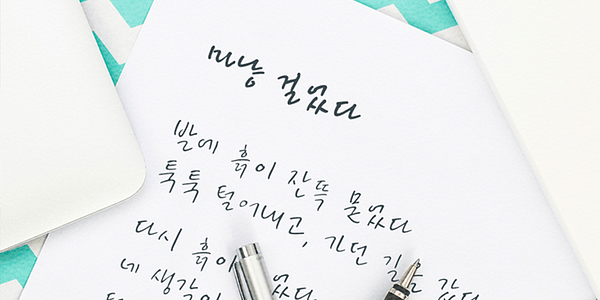 마냥 걸었다
발에 흙이 잔뜩 묻었다
툭툭 털어내고, 가던 길을 갔다
다시 흙이
네 생각